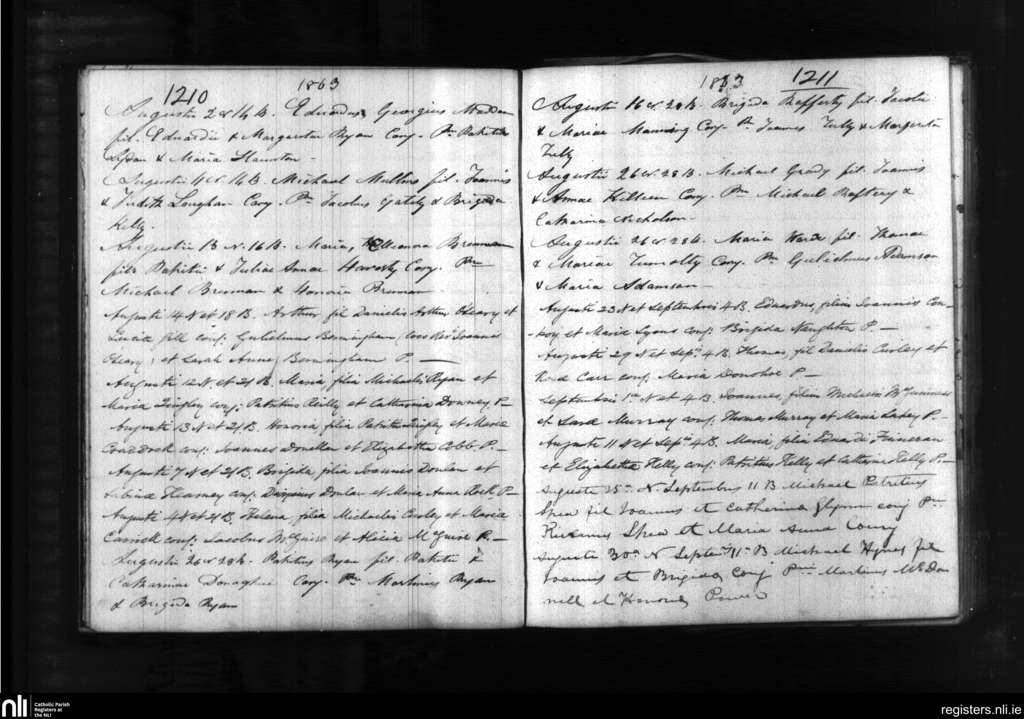 1210 1863
Augusti 2 & 16 B. Eduardus Georgius Madden
fil. Eduardi & Margaretæ Ryan Conj. Patritius
& Maria
Augusti 4 & 16 B. Michael Mullins fil. Joannis
& Judith Conj. Jacobus Gately & Brigida
Kelly.
Augusti 13 N. 16 B. Maria Brennan
Patritii & Juliae Annae Conj.
Michael Brennan & Honoria Brennan
Augusti 14 N et 18 B. Arthur fil Danielis Arthur O'Leary et
Lucia conj. Gulielmus Bermingham Joannes
O'Leary) et Sarah Anne Bermingham P.
Augusti 12 N. et 21 B. Maria filia Michaelis Ryan et
Maria conj: Patritius Reilly et Catherina Downey P.
Augusti 13 N et 21 B. Honoria filia Patritii et Maria
conj. Joannes Donellan et Elizabetha Cobb P.
Augusti 7 N et 21 B. Brigida filia Joannis Donlan et
Kearney conj: Donlan et Maria Anna P.
Augusti 4 N et 21 B. Helena, filia Michaelis et Maria
Carrick conj: Jacobus McGuire et Alicia McGuire P.
Augusti 26 et 28 b. Patritius Ryan fil. Patritii &
Catharinae Donaghue Conj. Martinus Ryan
& Brigida Ryan
1863 1211
Augusti 16 & 28 B. Brigida Rafferty fil. Jacobi
& Mariae Manning Conj. Joannes Tully & Margarita
Tully
Augusti 26 & 28 B. Michael Grady fil. Joannis
& Annae Killeen Conj. Michael Raftery &
Catharina Nicholson
Augusti 26 & 28 b. Maria Ward fil. Thomae
& Mariae Conj. Gulielmus Adamson
& Maria Adamson
Augusti 23 N et Septembris 4 B. Eduardus filius Joannis Con-
roy et Maria Lyons conj: Brigida Naughton P.
Augusti 29 N et Sept. 4 B. Thomas, fil Danielis Curley et
Rosa Carr conj: Maria Donohoe P.
Septembris 1 N et 4 B. Joannes, filius McGuinness
et Sara Murray conj: Thomas Murray et Maria P.
Augusti 11 N et Sept 4 B. Maria filia Eduardi Finneran
et Elizabetha Kelly conj: Patritius Kelly et Catherina Kelly P.
Augusti 25 N. Septembris 11 B Michael Patritius
Shea fil Joannis et Catherina Glynn conj
Shea et Maria Anna Conry
Augusti 30 N Sept 11 B Michael Hynes fil
Joannis et Brigida Conj Martinus McDon
nell et Honora Power
nli Catholic Parish
Registers at
the NLI
registers.nli.ie